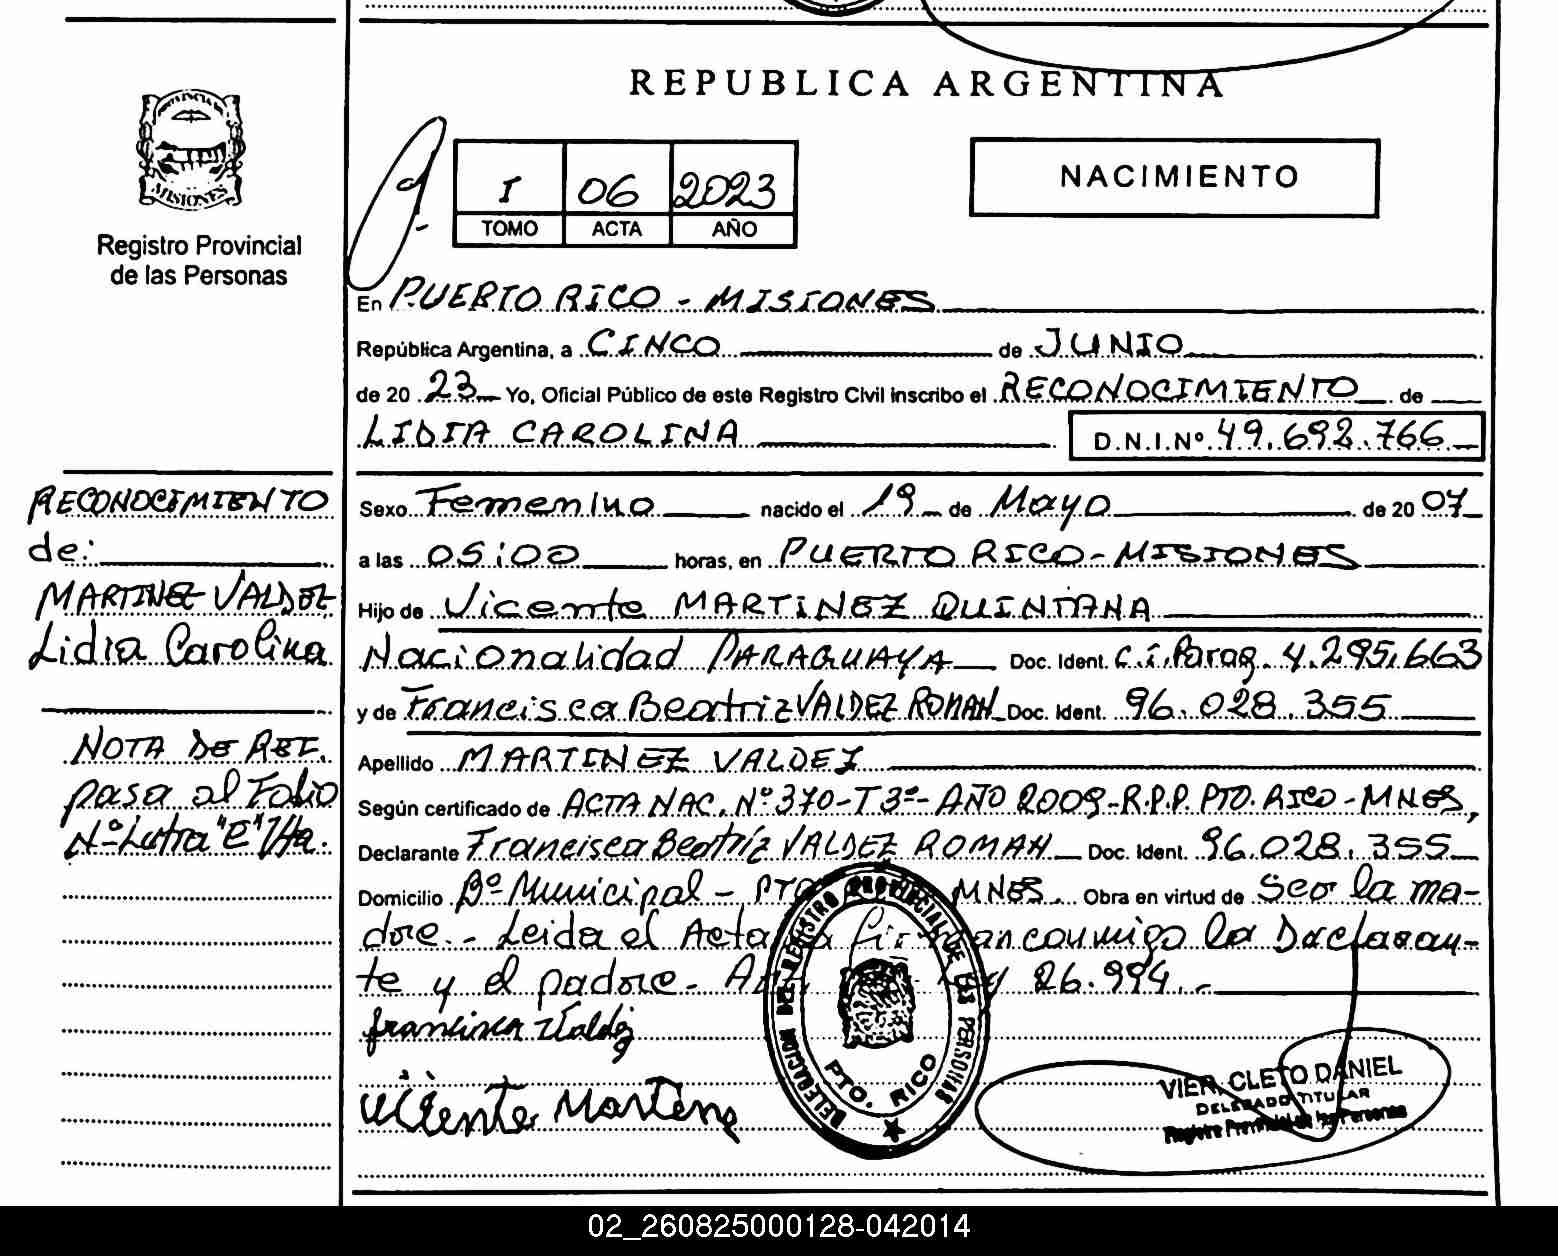 REPUBLICA ARGENTINA
PROVINCIA DE
MISIONES
Registro Provincial
de las Personas
I 06 2023
TOMO ACTA AÑO
NACIMIENTO
En PUERTO RICO - MISIONES
República Argentina, a CINCO de JUNIO
de 20 23 Yo, Oficial Público de este Registro Civil inscribo el RECONOCIMIENTO de
LIDIA CAROLINA D.N.I.Nº 49.692.766
RECONOCIMIENTO
de:
MARTINEZ VALDEZ
Lidia Carolina
NOTA DE REF.
pasa al Folio
Nº Letra "E" Vta.
Sexo Femenino nacido el 19 de Mayo de 20 07
a las 05:00 horas, en PUERTO RICO - MISIONES
Hijo de Vicente MARTINEZ QUINTANA
Nacionalidad PARAGUAYA Doc. Ident. C.I. Parag. 4.295.663
y de Francisca Beatriz VALDEZ ROMAN Doc. Ident. 96.028.355
Apellido MARTINEZ VALDEZ
Según certificado de ACTA NAC. Nº 370-T3º- AÑO 2009-R.P.P. PTO. RICO - MNES,
Declarante Francisca Beatríz VALDEZ ROMAN Doc. Ident. 96.028.355
Domicilio Bº Municipal - PTO MNES. Obra en virtud de Ser la ma-
dre. - Leida el Acta la firman conmigo la Declaran-
te y el padre. - Ley 26.994. -
francisca Valdez
vicente Martinez
DELEGACION DEL REGISTRO PROVINCIAL DE LAS PERSONAS
PTO. RICO
VIER, CLETO DANIEL
DELEGADO TITULAR
Registro Provincial de las Personas
02_260825000128-042014